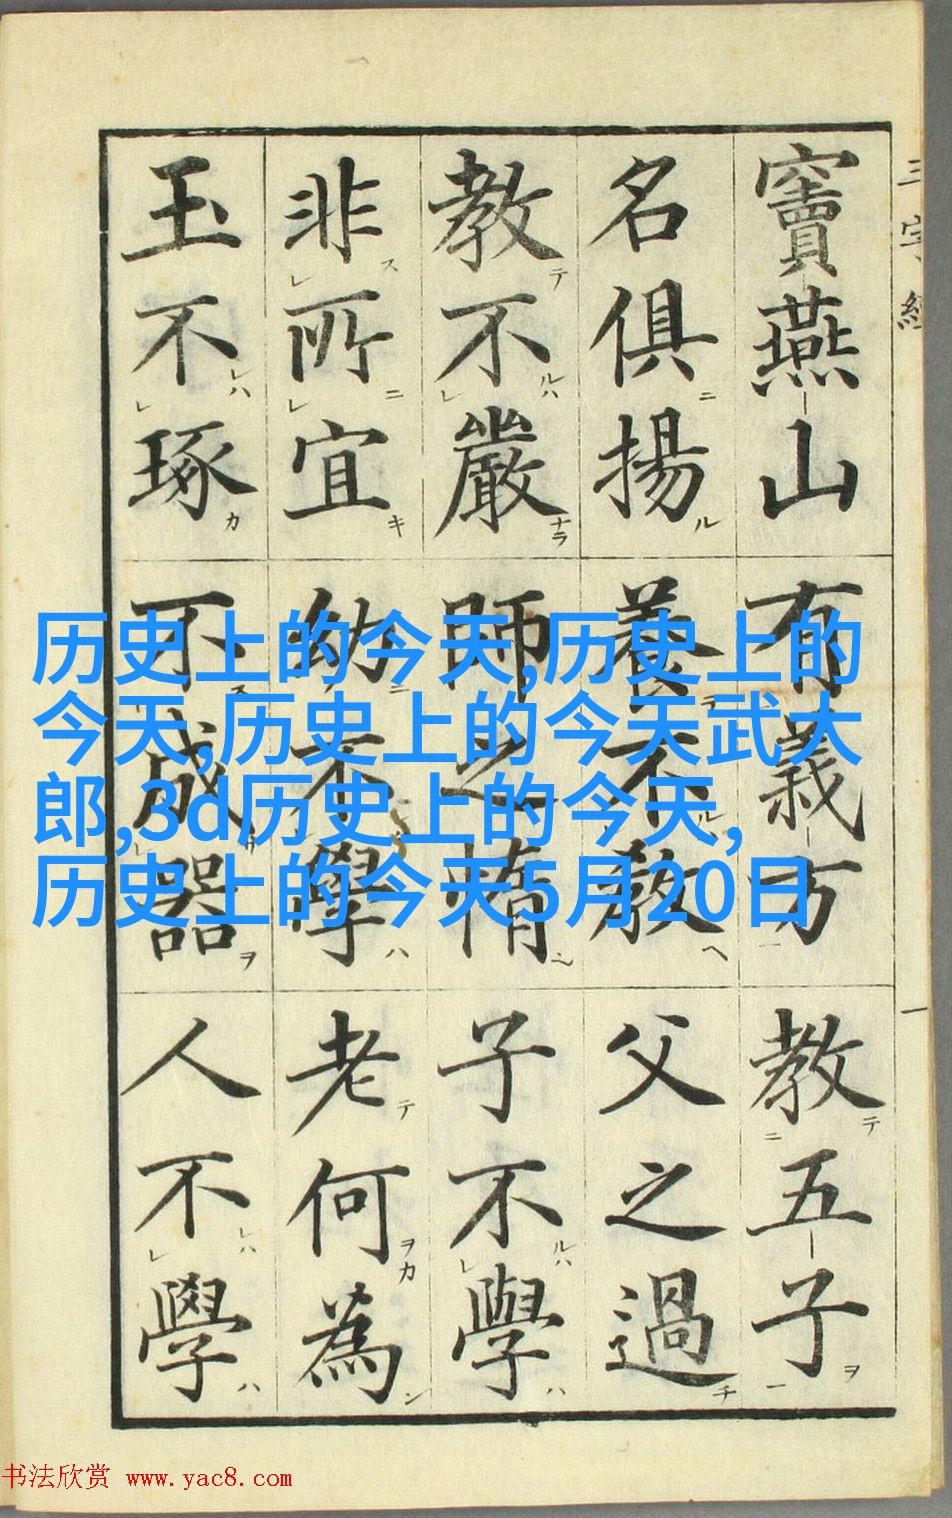 三字經
一
竇燕山有義方教五子
名俱揚養不教父之過
教不嚴師之惰子不學
非所宜幼不學老何為
玉不琢不成器人不學
历史上的今天,历史上的
今天,历史上的今天武大
郎,3d历史上的今天,
历史上的今天5月20日
书法欣赏 www.yac8.com